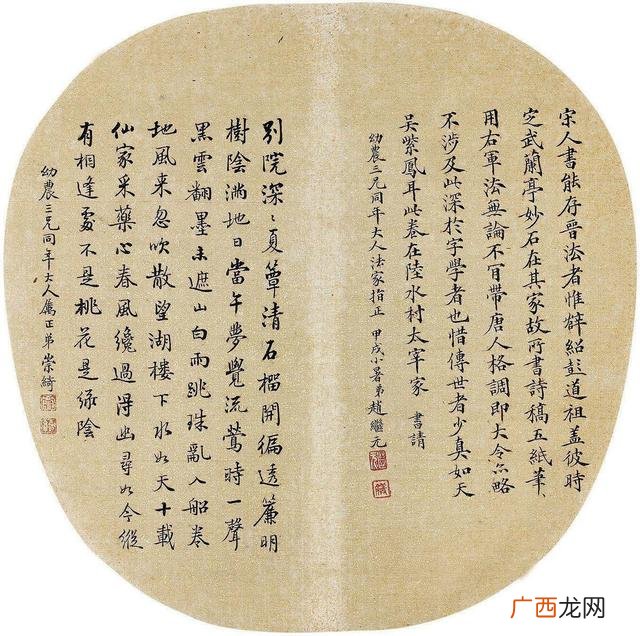 宋人書能存晉法者惟薛紹彭道祖蓋彼時
定武蘭亭妙石在其家故所書詩稿五紙筆
用右軍法無論不肯帶唐人格調即大令亦略
不涉及此深於字學者也惜傳世者少真如天
吳紫鳳耳此卷在陸水村太宰家 書請
幼農三兄同年大人法家指正 甲戌小暑弟趙繼元
別院深〻夏簟清石榴開徧透簾明
樹陰滿地日當午夢覺流鶯時一聲
黑雲翻墨未遮山白雨跳珠亂入船卷
地風來忽吹散望湖樓下水如天十載
仙家采藥心春風纔過得幽尋如今縱
有相逢處不是桃花是綠陰
幼農三兄同年大人正弟崇綺
广西龙网